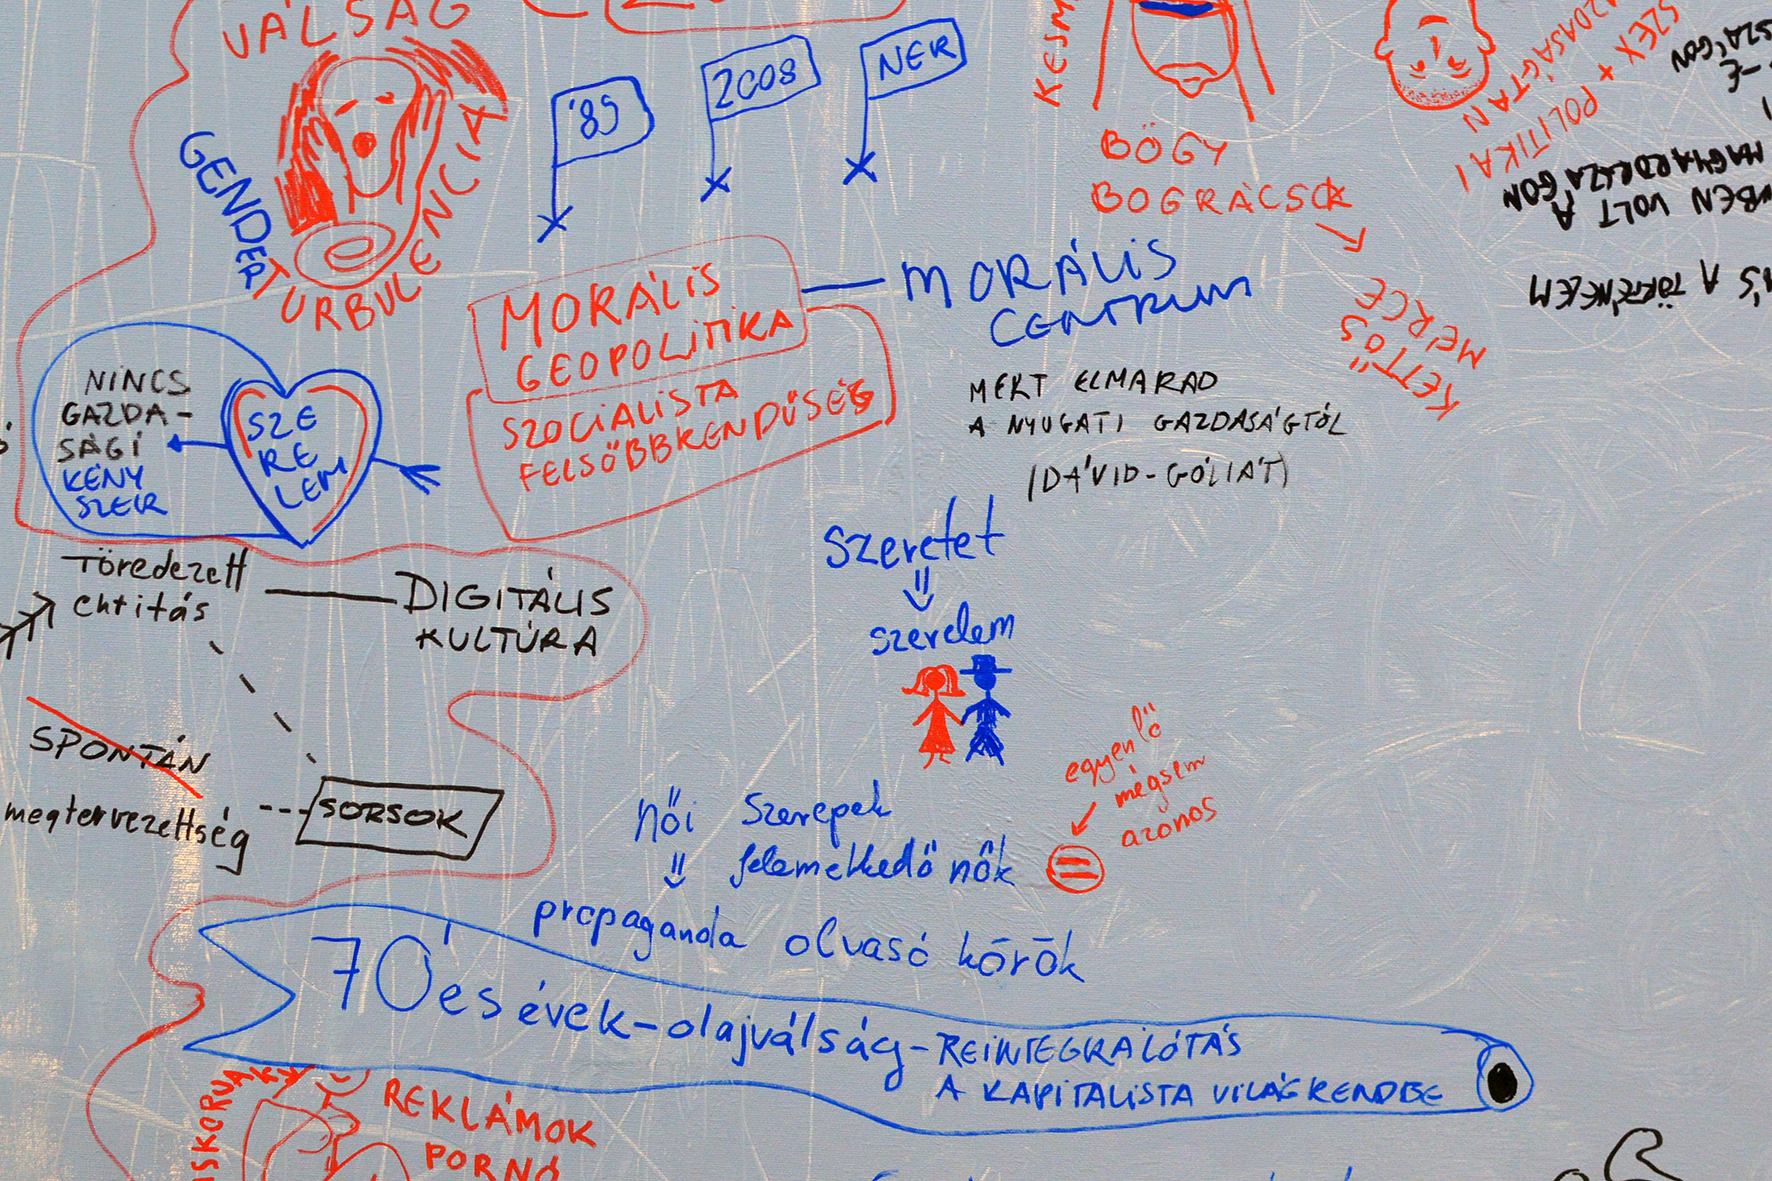 VÁLSÁG
GENDER
TURBULENCIA
'89
2008
NER
BÖGY
BOGRÁCSOK
SZEX +
POLITIKAI
KETTŐS
MÉRCE
VOLT A
MAGYARORSZÁGON
A TÖRTÉNELEM
MORÁLIS
GEOPOLITIKA
SZOCIALISTA
FELSŐBBRENDŰSÉG
MORÁLIS
CENTRUM
MERT ELMARAD
A NYUGATI GAZDASÁGTÓL
(DÁVID-GÓLIÁT)
NINCS
GAZDA-
SÁGI
KÉNY
SZER
SZE
RE
LEM
szeretet
szerelem
Töredezett
entitás
DIGITÁLIS
KULTÚRA
SPONTÁN
megtervezettség
SORSOK
egyenlő
mégsem
azonos
női szerepek
felemelkedő nők
propaganda olvasó körök
70es évek-olajválság-REINTEGRÁLÓTÁS
A KAPITALISTA VILÁGRENDBE
REKLÁMOK
PORNÓ